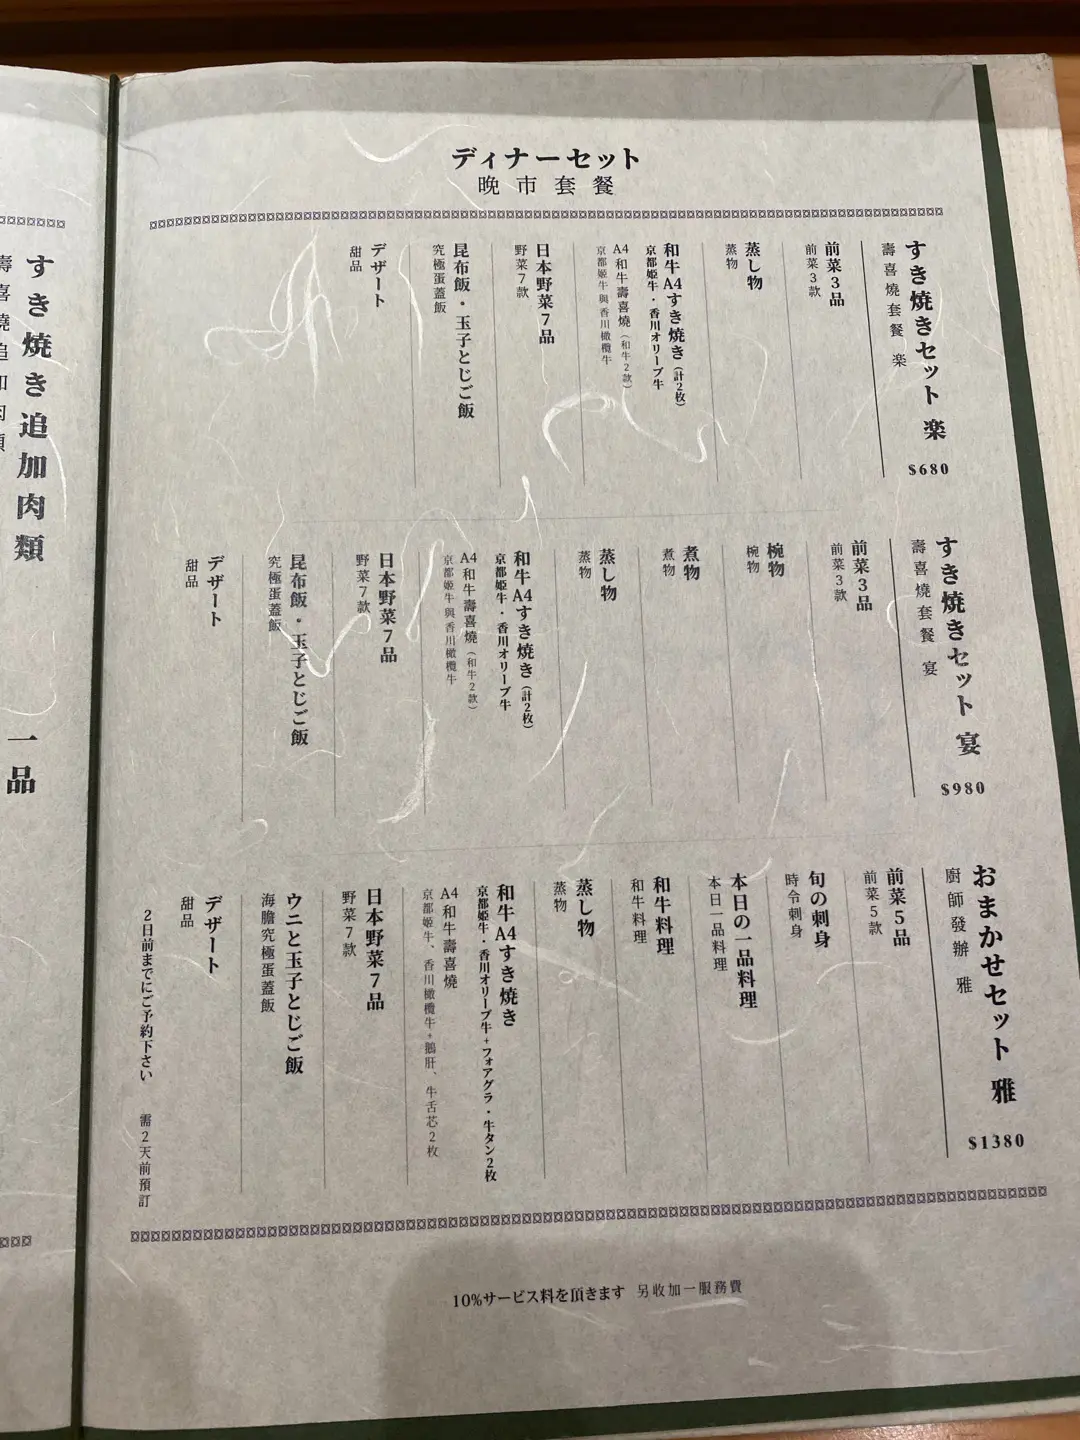 ディナーセット
晚市套餐
すき焼きセット 楽
壽喜燒套餐 楽
$680
前菜3品
前菜3款
蒸し物
蒸物
和牛A4すき焼き(計2枚)
京都姫牛・香川オリーブ牛
A4和牛壽喜燒(和牛2款)
京都姬牛與香川橄欖牛
日本野菜7品
野菜7款
昆布飯・玉子とじご飯
究極蛋蓋飯
デザート
甜品
すき焼きセット 宴
壽喜燒套餐 宴
$980
前菜3品
前菜3款
椀物
椀物
煮物
煮物
蒸し物
蒸物
和牛A4すき焼き(計2枚)
京都姫牛・香川オリーブ牛
A4和牛壽喜燒(和牛2款)
京都姬牛與香川橄欖牛
日本野菜7品
野菜7款
昆布飯・玉子とじご飯
究極蛋蓋飯
デザート
甜品
おまかせセット 雅
廚師發辦 雅
$1380
前菜5品
前菜5款
旬の刺身
時令刺身
本日の一品料理
本日一品料理
和牛料理
和牛料理
蒸し物
蒸物
和牛A4すき焼き
京都姫牛・香川オリーブ牛+フォアグラ・牛タン2枚
A4和牛壽喜燒
京都姬牛、香川橄欖牛+鵝肝、牛舌芯2枚
日本野菜7品
野菜7款
ウニと玉子とじご飯
海膽究極蛋蓋飯
デザート
甜品
2日前までにご予約下さい 需2天前預訂
10%サービス料を頂きます 另收加一服務費
すき焼き追加肉類
壽喜燒追加肉類
一品